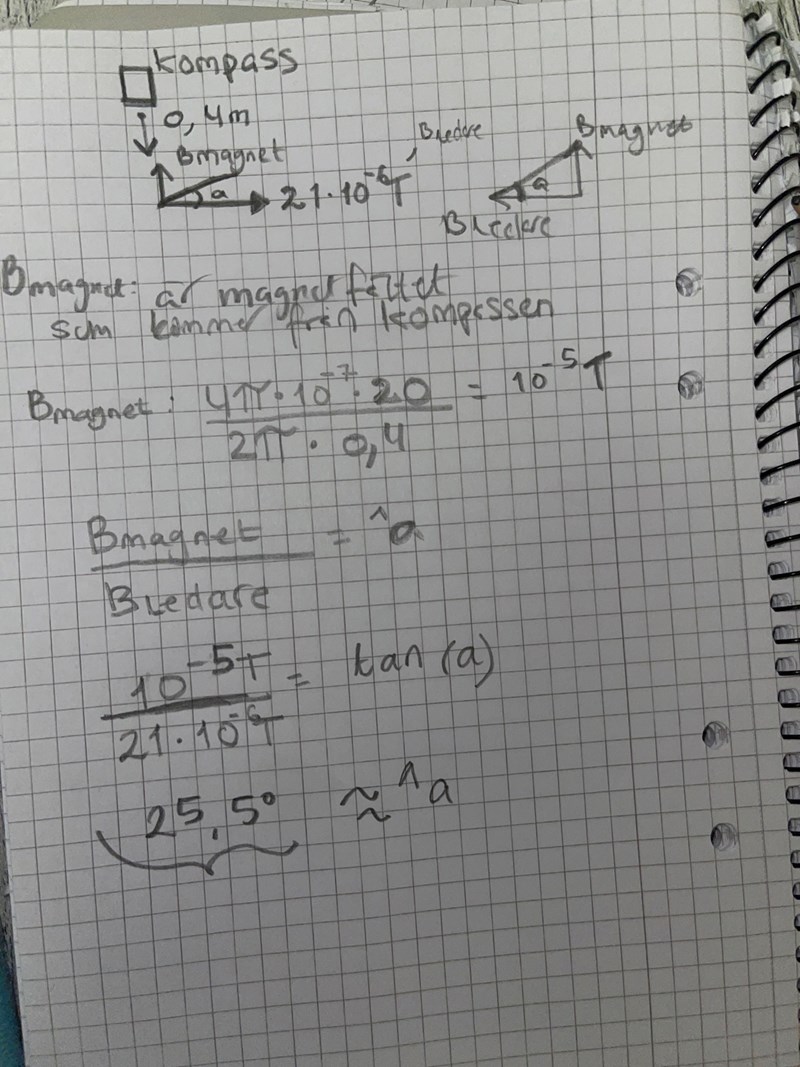 kompass
0,4m
Bmagnet
a
21·10⁻⁶T
Bledare
Bmagnet
a
Bledare
Bmagnet: är magnetfältet
som kommer från kompassen
Bmagnet: 4π·10⁻⁷·20 / 2π·0,4 = 10⁻⁵T
Bmagnet / Bledare = ^a
10⁻⁵T / 21·10⁻⁶T = tan(a)
25,5° ≈ ^a